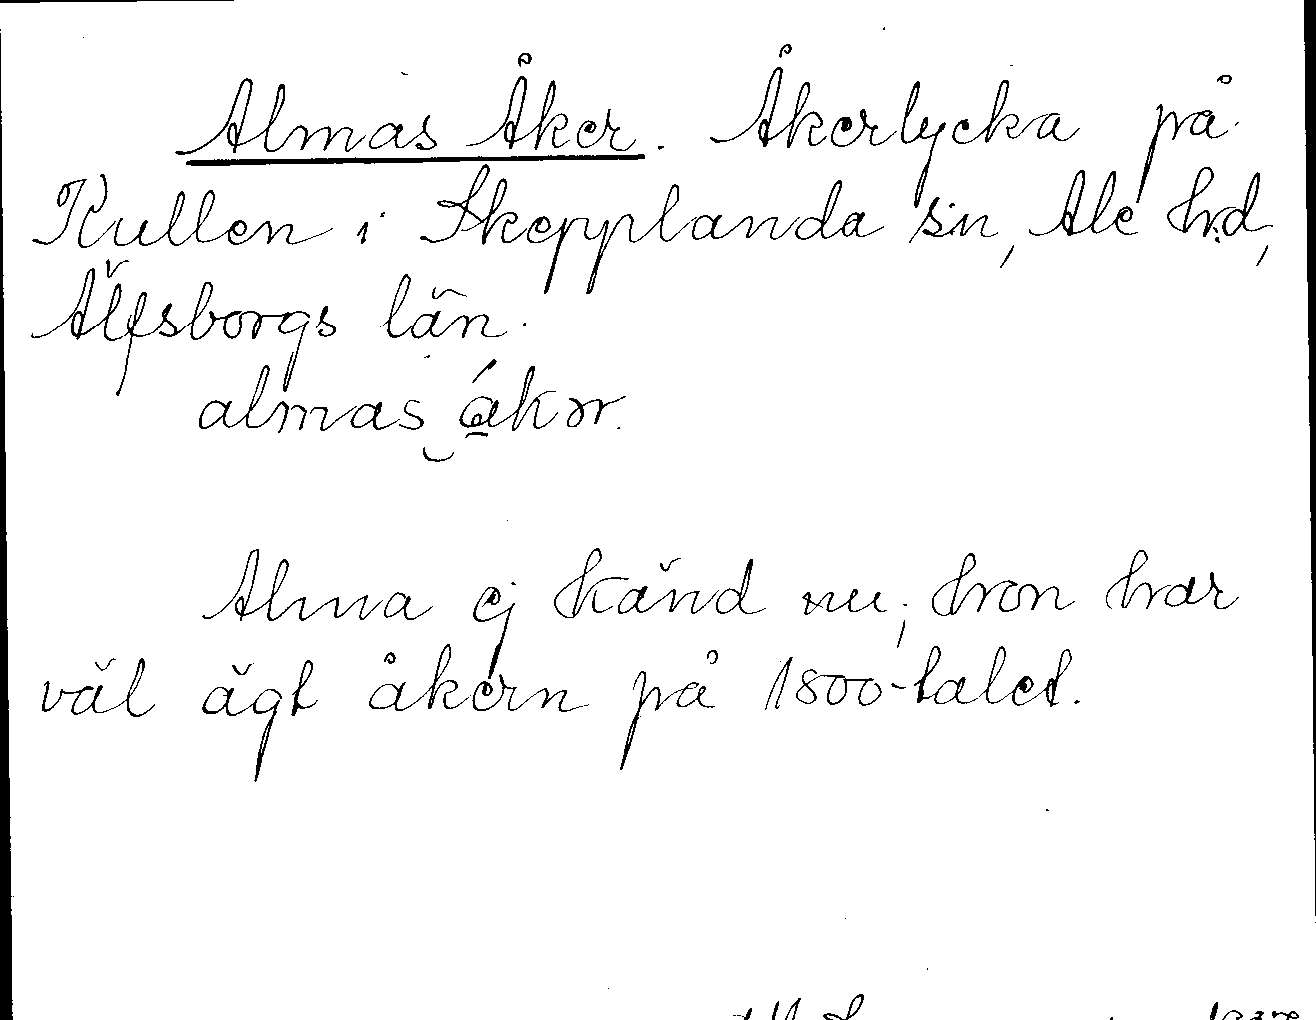 Almas Åker. Åkerlycka på
Kullen i Skepplanda sn, Ale hd,
Älfsborgs län.
almas ‿ ákər.
Alma ej känd nu; hon har
väl ägt åkern på 1800-talet.